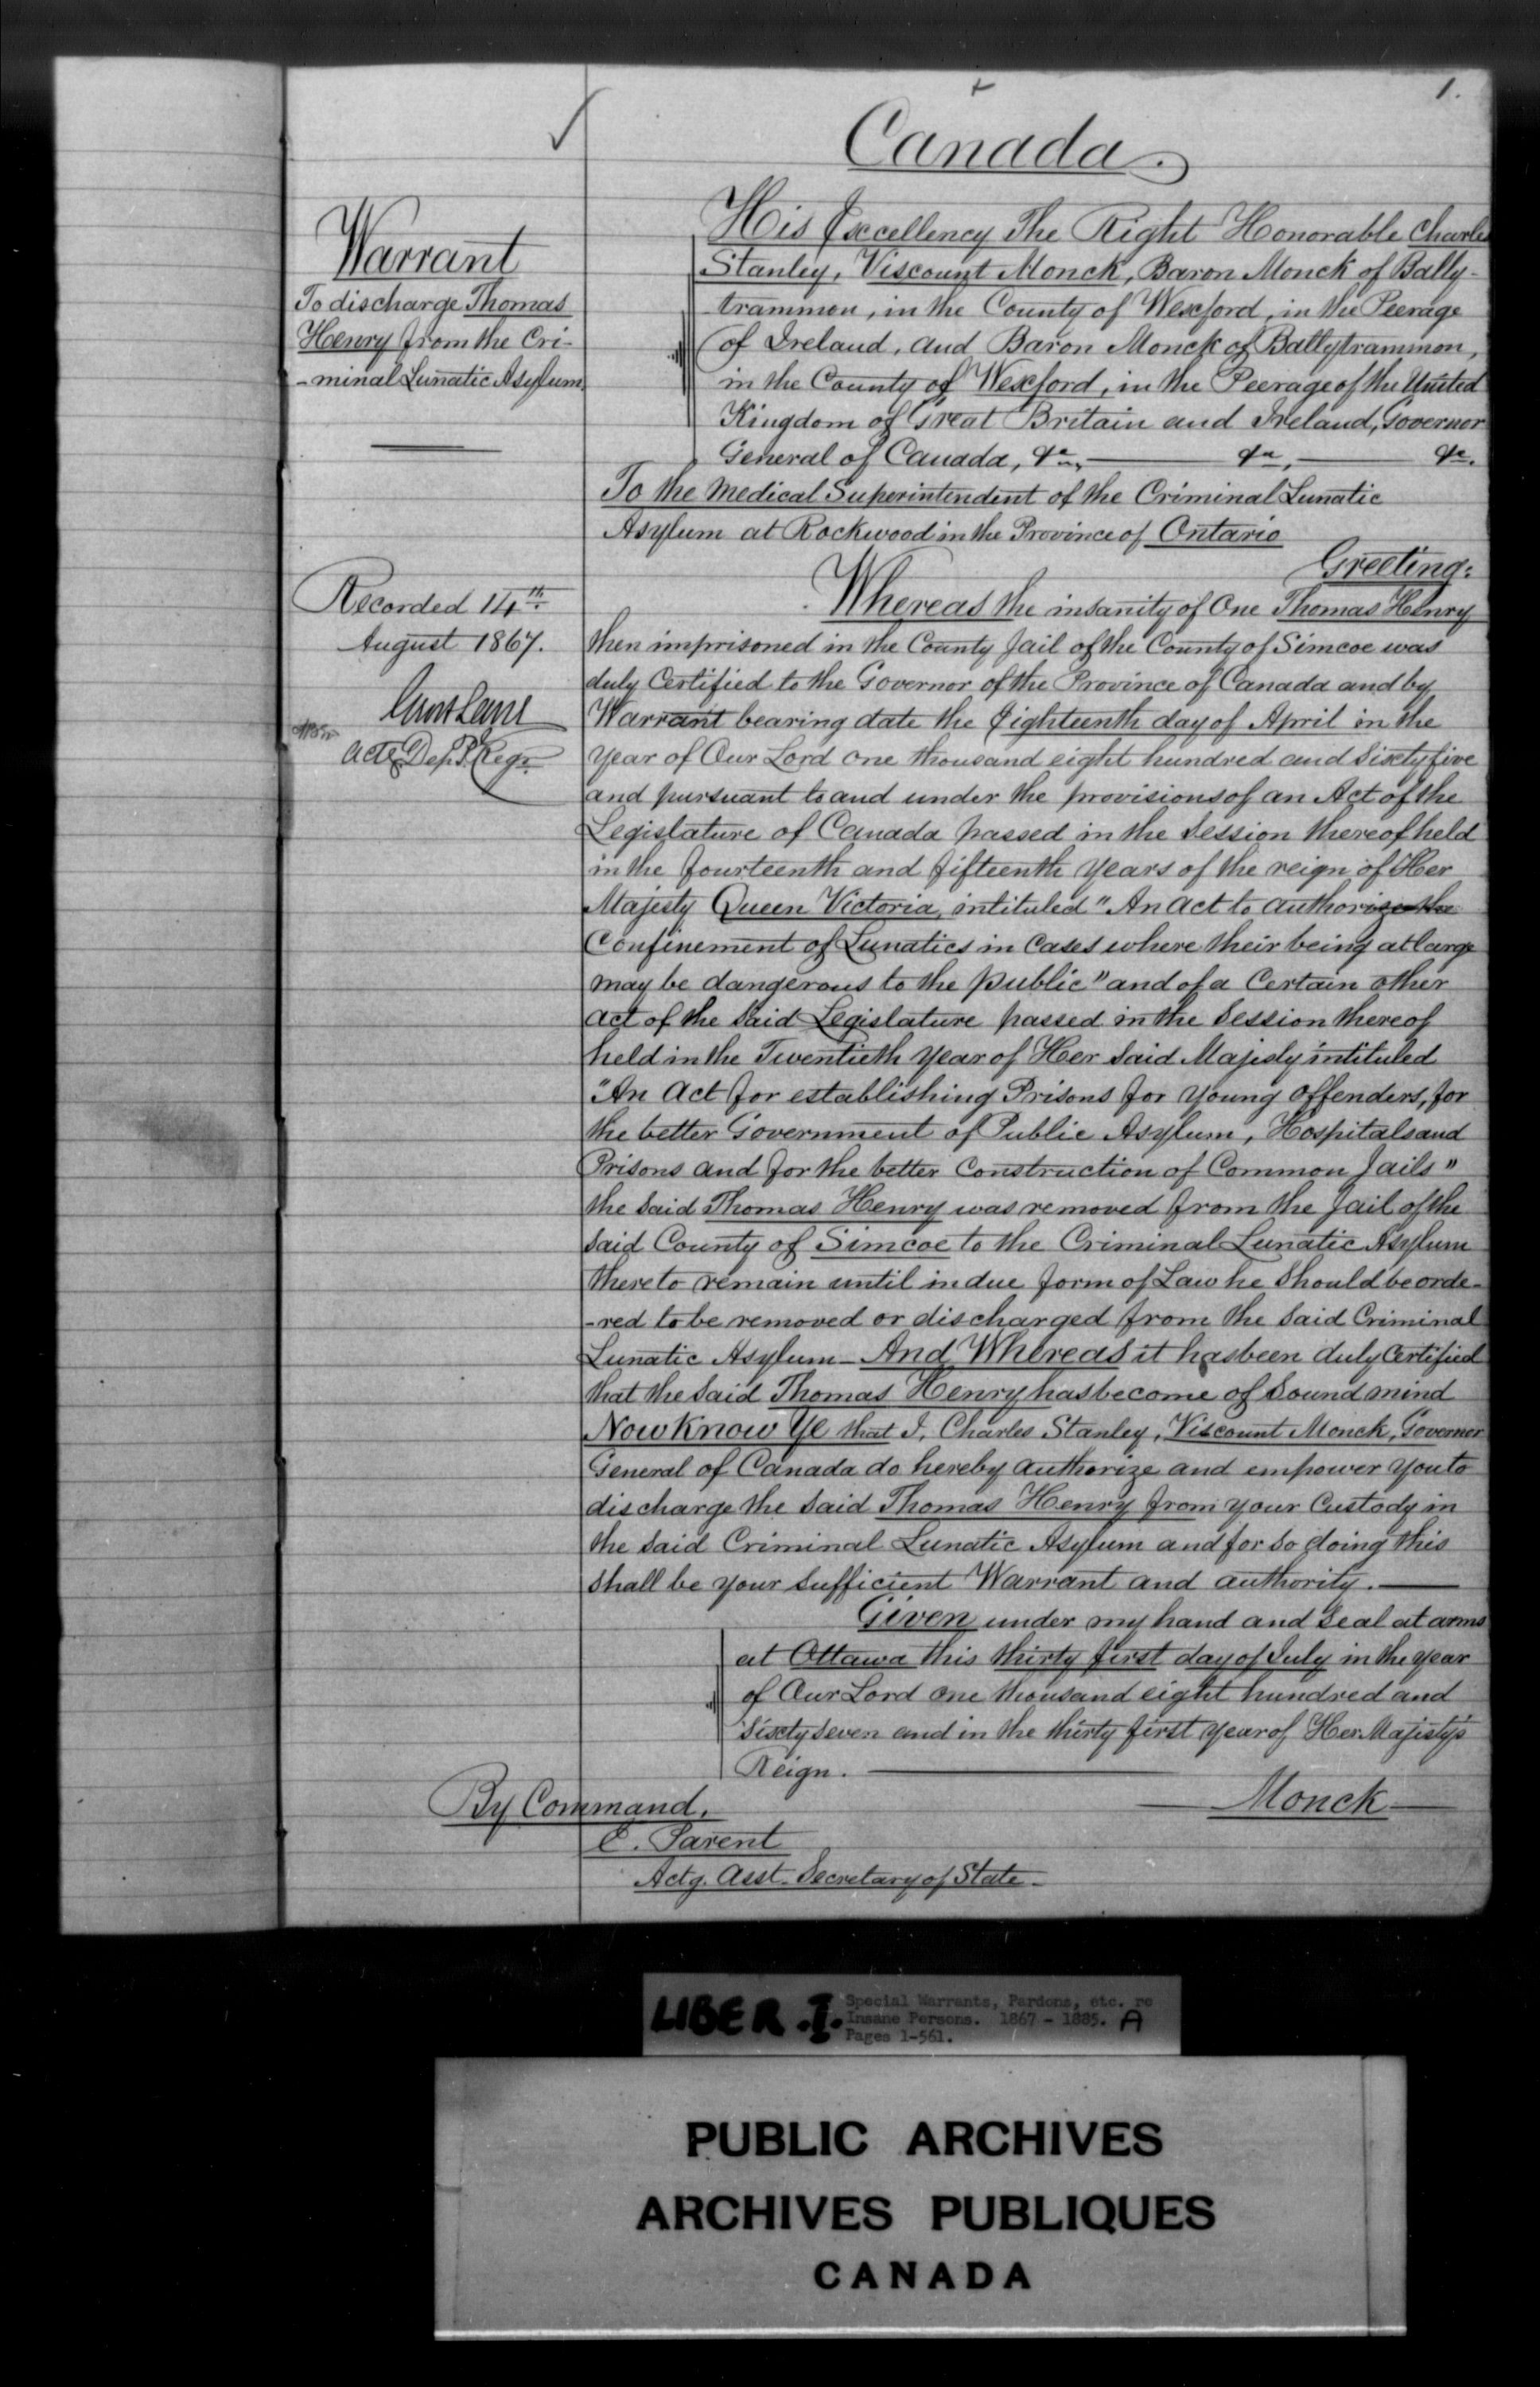 1.
Canada.
Warrant
To discharge Thomas
Henry from the Cri-
-minal Lunatic Asylum
Recorded 14th
August 1867.
Actg Dep. Regr
His Excellency The Right Honorable Charles
Stanley, Viscount Monck, Baron Monck of Bally-
trammon, in the County of Wexford, in the Peerage
of Ireland, and Baron Monck of Ballytrammon,
in the County of Wexford, in the Peerage of the United
Kingdom of Great Britain and Ireland, Governor
General of Canada, &c., &c., &c.
To the Medical Superintendent of the Criminal Lunatic
Asylum at Rockwood in the Province of Ontario
Greeting:
Whereas the insanity of One Thomas Henry
then imprisoned in the County Jail of the County of Simcoe was
duly Certified to the Governor of the Province of Canada and by
Warrant bearing date the Eighteenth day of April in the
year of Our Lord one thousand eight hundred and Sixty five
and pursuant to and under the provisions of an Act of the
Legislature of Canada passed in the Session thereof held
in the fourteenth and fifteenth years of the reign of Her
Majesty Queen Victoria, intituled "An Act to authorize the
Confinement of Lunatics in Cases where their being at large
may be dangerous to the public" and of a Certain other
act of the Said Legislature passed in the Session thereof
held in the Twentieth year of Her Said Majesty intituled
"An Act for establishing Prisons for young offenders, for
the better Government of Public Asylum, Hospitals and
Prisons and for the better Construction of Common Jails"
the Said Thomas Henry was removed from the Jail of the
Said County of Simcoe to the Criminal Lunatic Asylum
there to remain until in due form of Law he Should be orde-
-red to be removed or discharged from the Said Criminal
Lunatic Asylum - And Whereas it has been duly Certified
that the Said Thomas Henry has become of Sound mind
Now Know Ye that I, Charles Stanley, Viscount Monck, Governor
General of Canada do hereby authorize and empower you to
discharge the Said Thomas Henry from your Custody in
the Said Criminal Lunatic Asylum and for so doing this
Shall be your Sufficient Warrant and authority.
Given under my hand and Seal at arms
at Ottawa this thirty first day of July in the year
of Our Lord one thousand eight hundred and
Sixty Seven and in the thirty first year of Her Majesty's
Reign.
Monck
By Command,
E. Parent
Actg. Asst. Secretary of State
LIBER .I. A
Special Warrants, Pardons, etc. re
Insane Persons. 1867 - 1885.
Pages 1-561.
PUBLIC ARCHIVES
ARCHIVES PUBLIQUES
CANADA